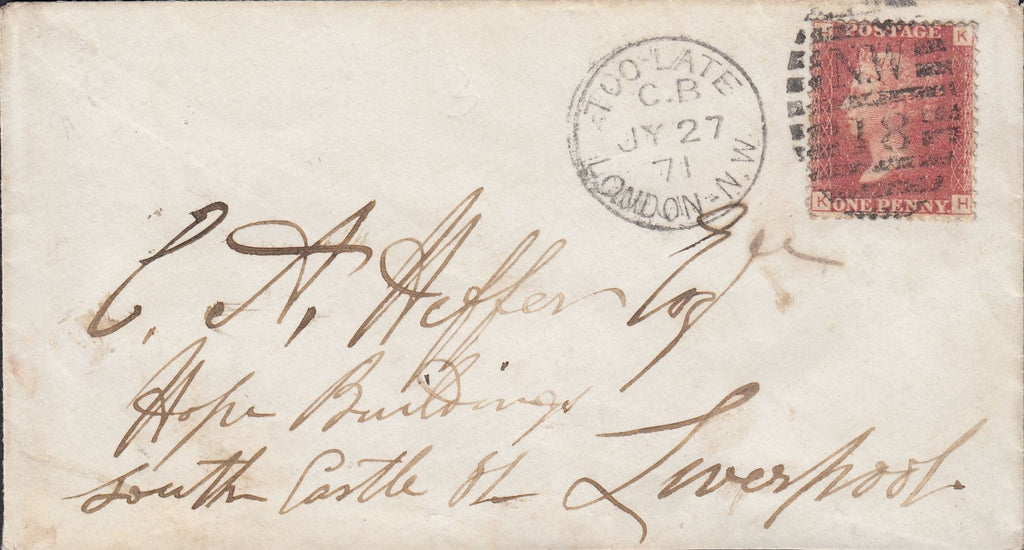 POSTAGE
K
N.W
18
K ONE PENNY H
TOO-LATE
C.B
JY 27
71
LONDON-N.W
C. A. Heffer Esqre
Hope Buildings
South Castle St Liverpool.